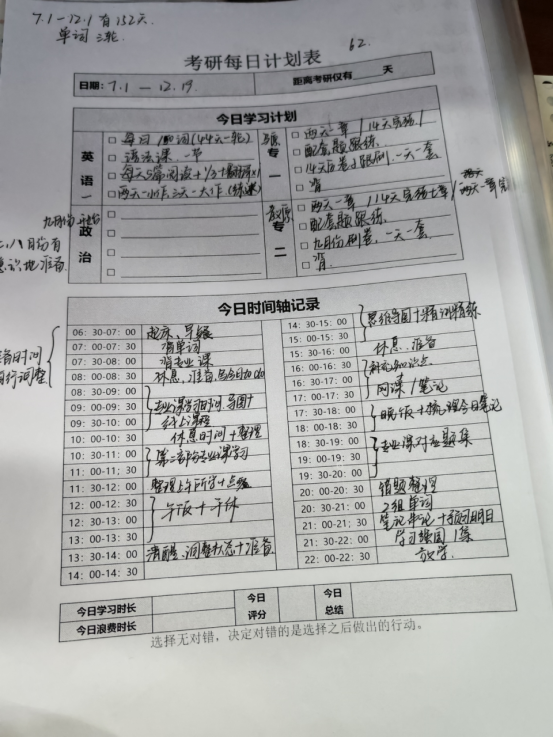 7.1-12.1 有152天
单词 三轮.
62.
考研每日计划表
日期: 7.1 — 12.19.
距离考研仅有 天
今日学习计划
英语一
□ 每日1组词(44天一轮)
□ 语法课 一节
□
□ 两天一小作三天一大作(练课)
政治
□
□
□
□
专一
□ 两天一章 / 14天
□ 配套题跟练.
□ 一天一套
□ 背
专二
□ 两天一章 / 14天
□ 配套题跟练.
□ 九月份刷卷, 一天一套
□ 背.
两天一章
九月份
八月份有
意识地准备
时间
自行调整
今日时间轴记录
06: 30-07: 00 起床、早餐
07: 00-07: 30 背单词
07: 30-08: 00 背专业课
08: 00-08: 30 休息、准备
08: 30-09: 00
09: 00-09: 30 专业课学习时间 导图+
09: 30-10: 00 线上课程
10: 00-10: 30 休息时间+整理
10: 30-11: 00
11: 00-11: 30 第二部分专业课学习
11: 30-12: 00 整理上午所学
12: 00-12: 30
12: 30-13: 00 午饭+午休
13: 00-13: 30
13: 30-14: 00 清醒、调整状态+准备
14: 00-14: 30
14: 30-15: 00 思维导图+精词精练
15: 00-15: 30
15: 30-16: 00 休息、准备
16: 00-16: 30 知识点
16: 30-17: 00 网课 / 笔记
17: 00-17: 30
17: 30-18: 00 晚饭+梳理今日笔记
18: 00-18: 30
18: 30-19: 00
19: 00-19: 30 专业课对应题集
19: 30-20: 00
20: 00-20: 30 错题整理
20: 30-21: 00 2组单词
21: 00-21: 30 笔记串记+预习明日
21: 30-22: 00 学习强国 1集
22: 00-22: 30 放学.
今日学习时长
今日浪费时长
今日评分
今日总结
选择无对错，决定对错的是选择之后做出的行动。